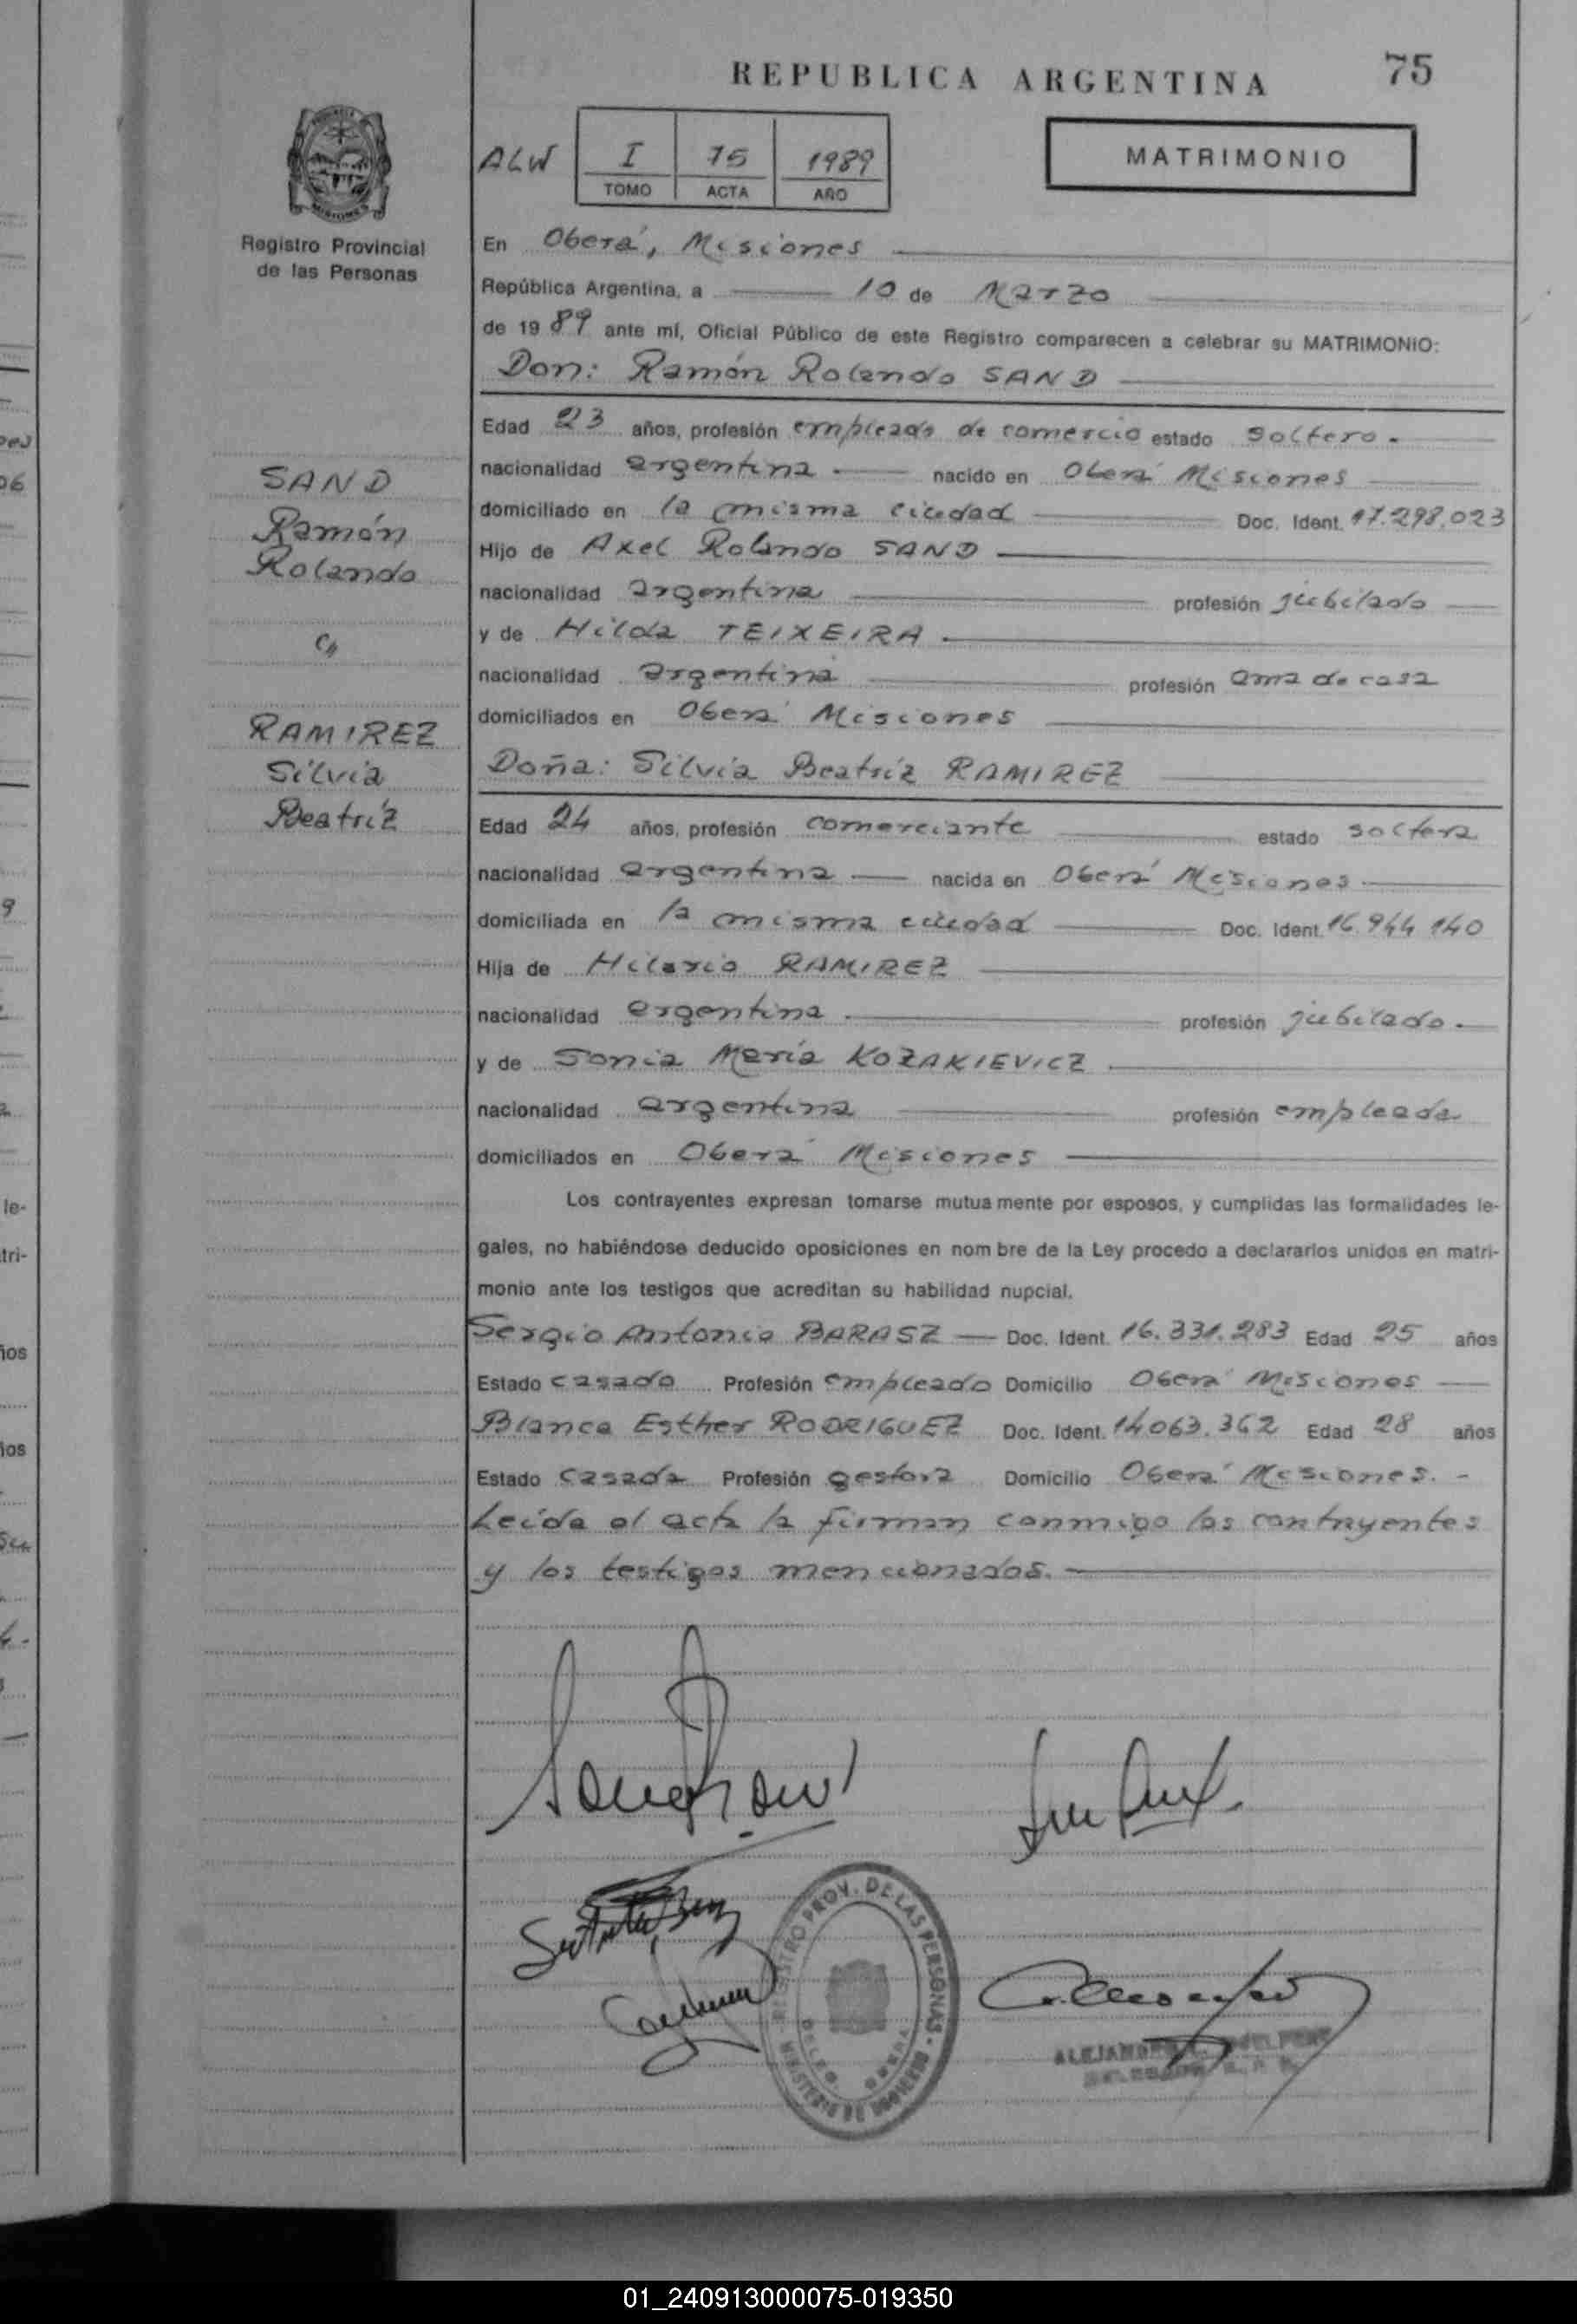 REPUBLICA ARGENTINA
75
ALW
I 75 1989
TOMO ACTA AÑO
MATRIMONIO
Registro Provincial
de las Personas
En Oberá, Misiones
República Argentina, a 10 de Marzo
de 1989 ante mí, Oficial Público de este Registro comparecen a celebrar su MATRIMONIO:
Don: Ramón Rolando SAND
Edad 23 años, profesión empleado de comercio estado soltero.
nacionalidad argentina nacido en Oberá Misiones
domiciliado en la misma ciudad Doc. Ident. 17.298.023
Hijo de Axel Rolando SAND
nacionalidad argentina profesión jubilado
y de Hilda TEIXEIRA
nacionalidad argentina profesión ama de casa
domiciliados en Oberá Misiones
SAND
Ramón
Rolando
c/
RAMIREZ
Silvia
Beatríz
Doña: Silvia Beatríz RAMIREZ
Edad 24 años, profesión comerciante estado soltera
nacionalidad argentina nacida en Oberá Misiones
domiciliada en la misma ciudad Doc. Ident. 16.944 140
Hija de Hilario RAMIREZ
nacionalidad argentina profesión jubilado.
y de Sonia María KOZAKIEVICZ
nacionalidad argentina profesión empleada
domiciliados en Oberá Misiones
Los contrayentes expresan tomarse mutua mente por esposos, y cumplidas las formalidades le-
gales, no habiéndose deducido oposiciones en nom bre de la Ley procedo a declararlos unidos en matri-
monio ante los testigos que acreditan su habilidad nupcial.
Sergio Antonio BARASZ Doc. Ident. 16.331.283 Edad 25 años
Estado casado Profesión empleado Domicilio Oberá Misiones
Blanca Esther RODRIGUEZ Doc. Ident. 14063.362 Edad 28 años
Estado casada Profesión gestora Domicilio Oberá Misiones. -
Leída el acta la firman conmigo los contrayentes
y los testigos mencionados.
REGISTRO PROV. DE LAS PERSONAS
MINISTERIO DE GOBIERNO
01_240913000075-019350